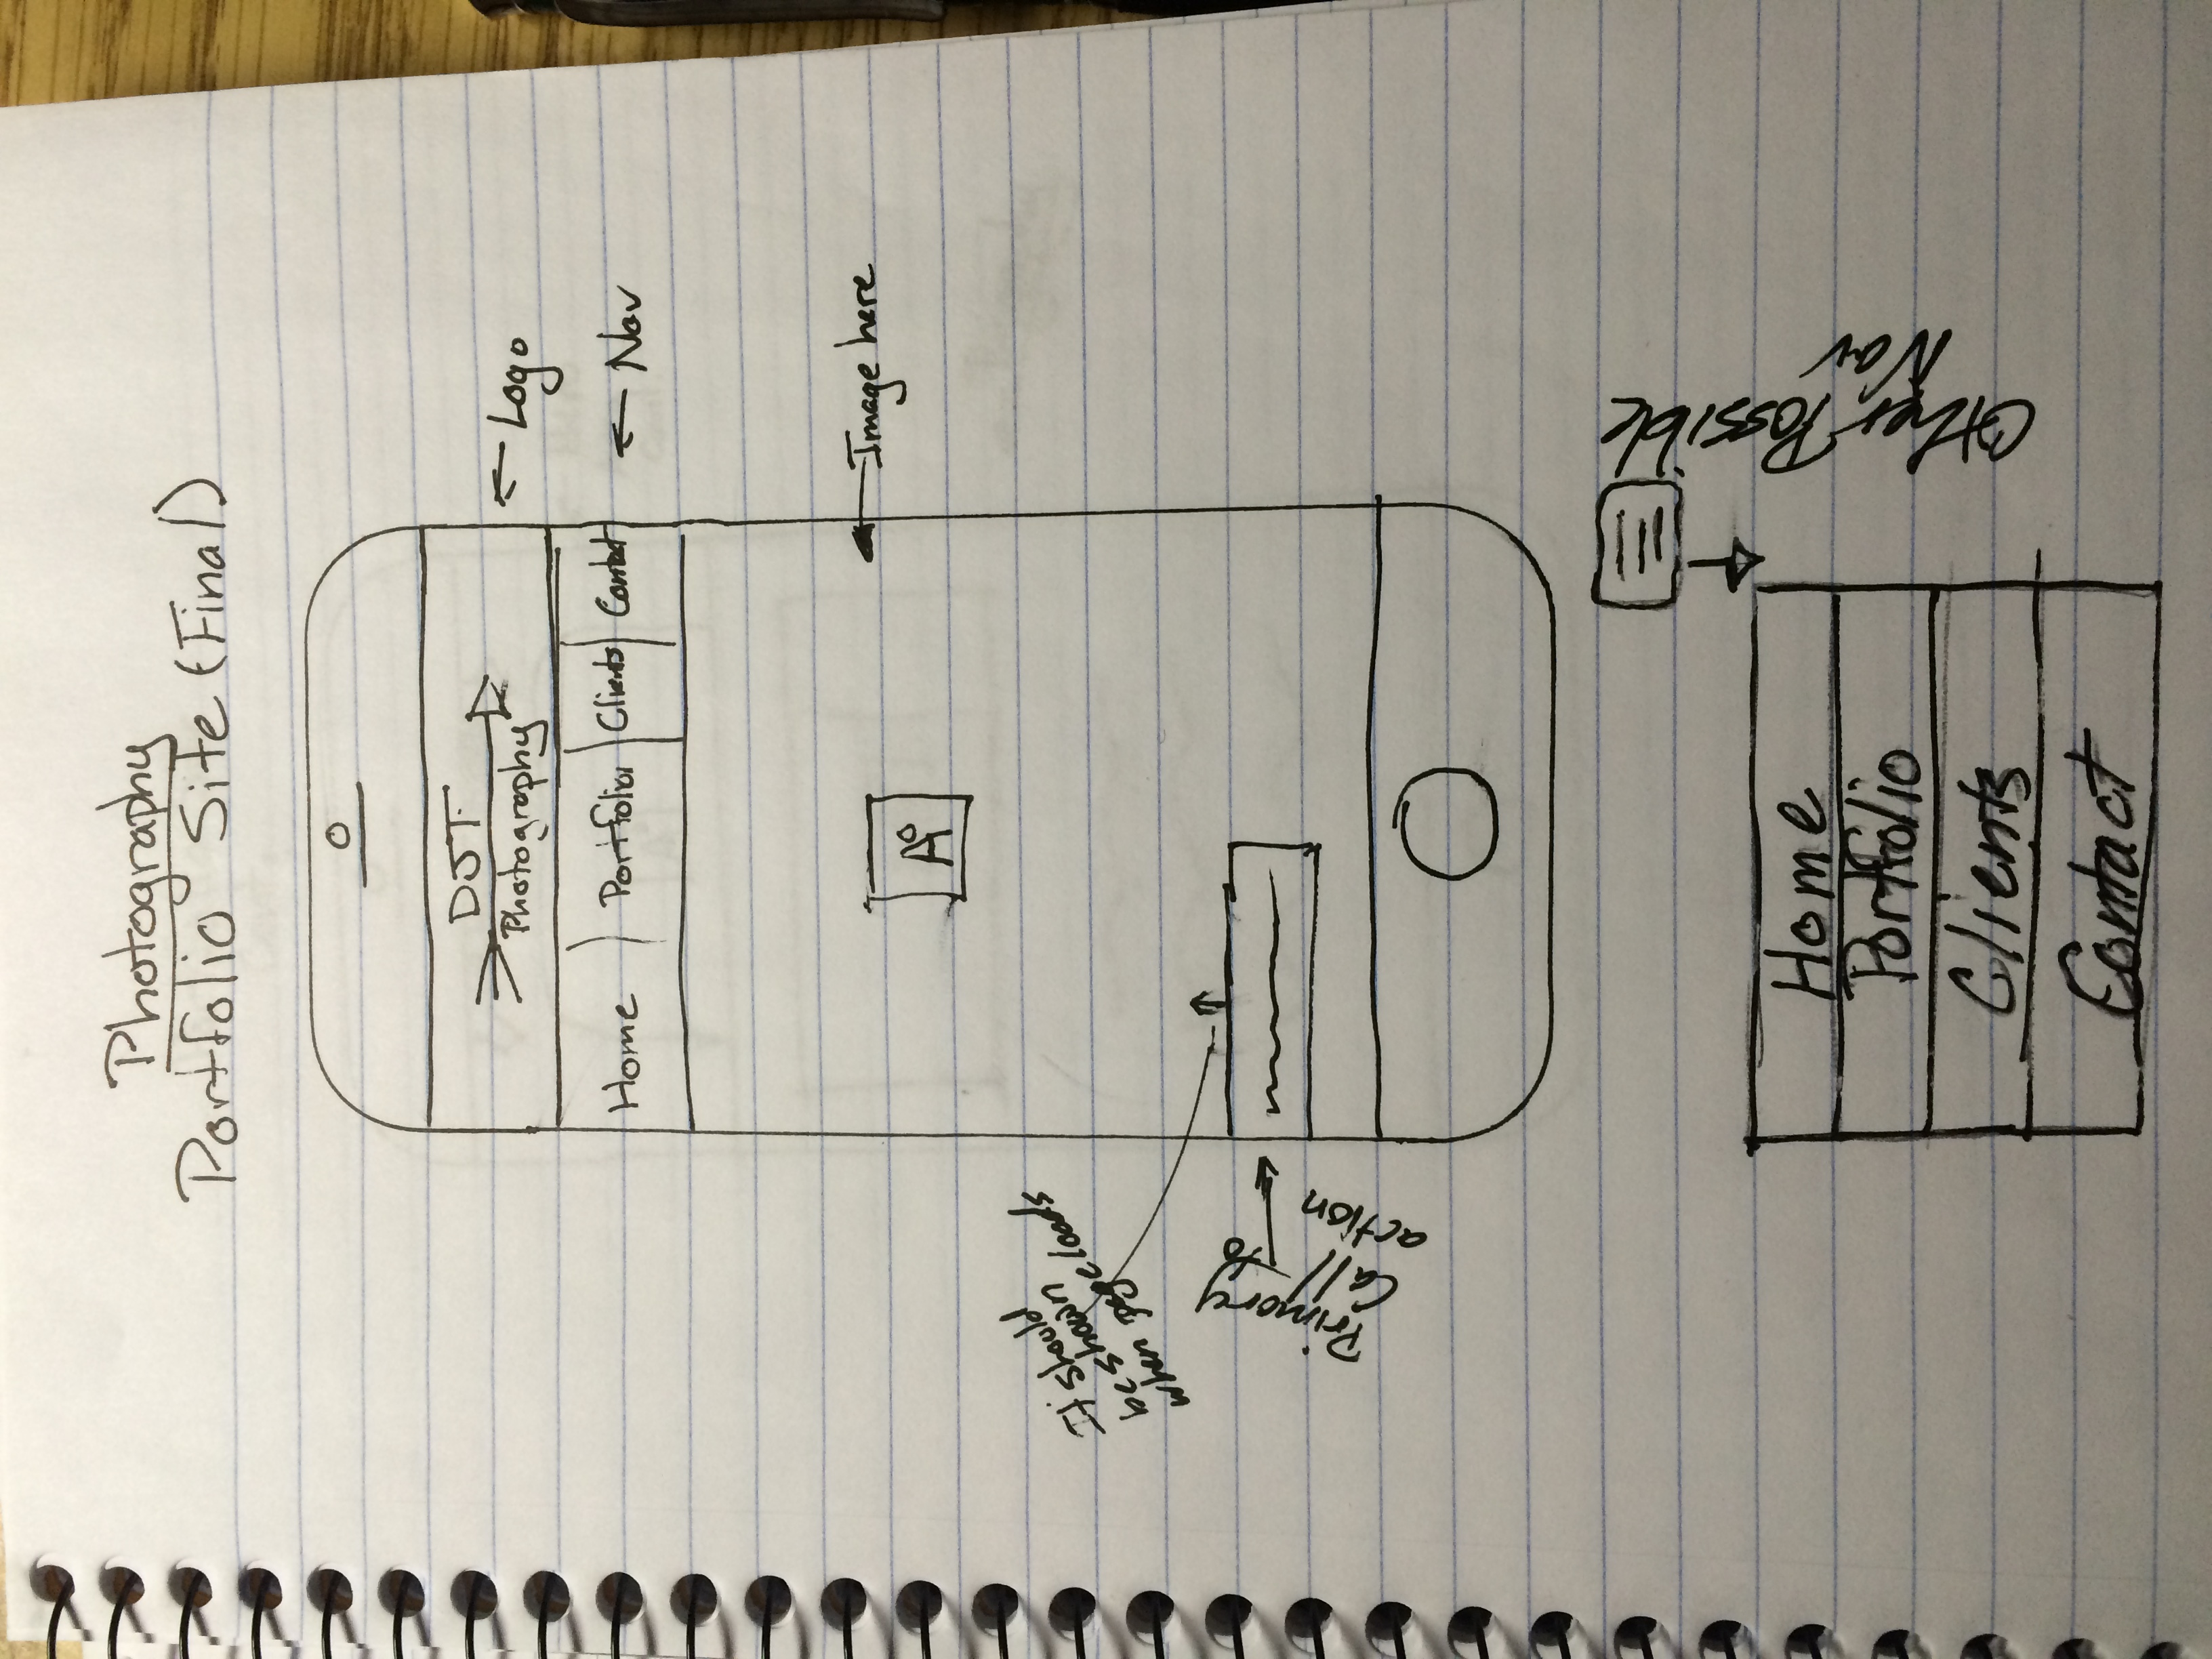 Photography
Portfolio Site (Final)
DJT
Photography
Logo
Home
Portfolio
Clients
Contact
Nav
Image here
It should
be shown
when page loads
Primary
Call to
action
Other Possible
Nav
Home
Portfolio
Clients
Contact